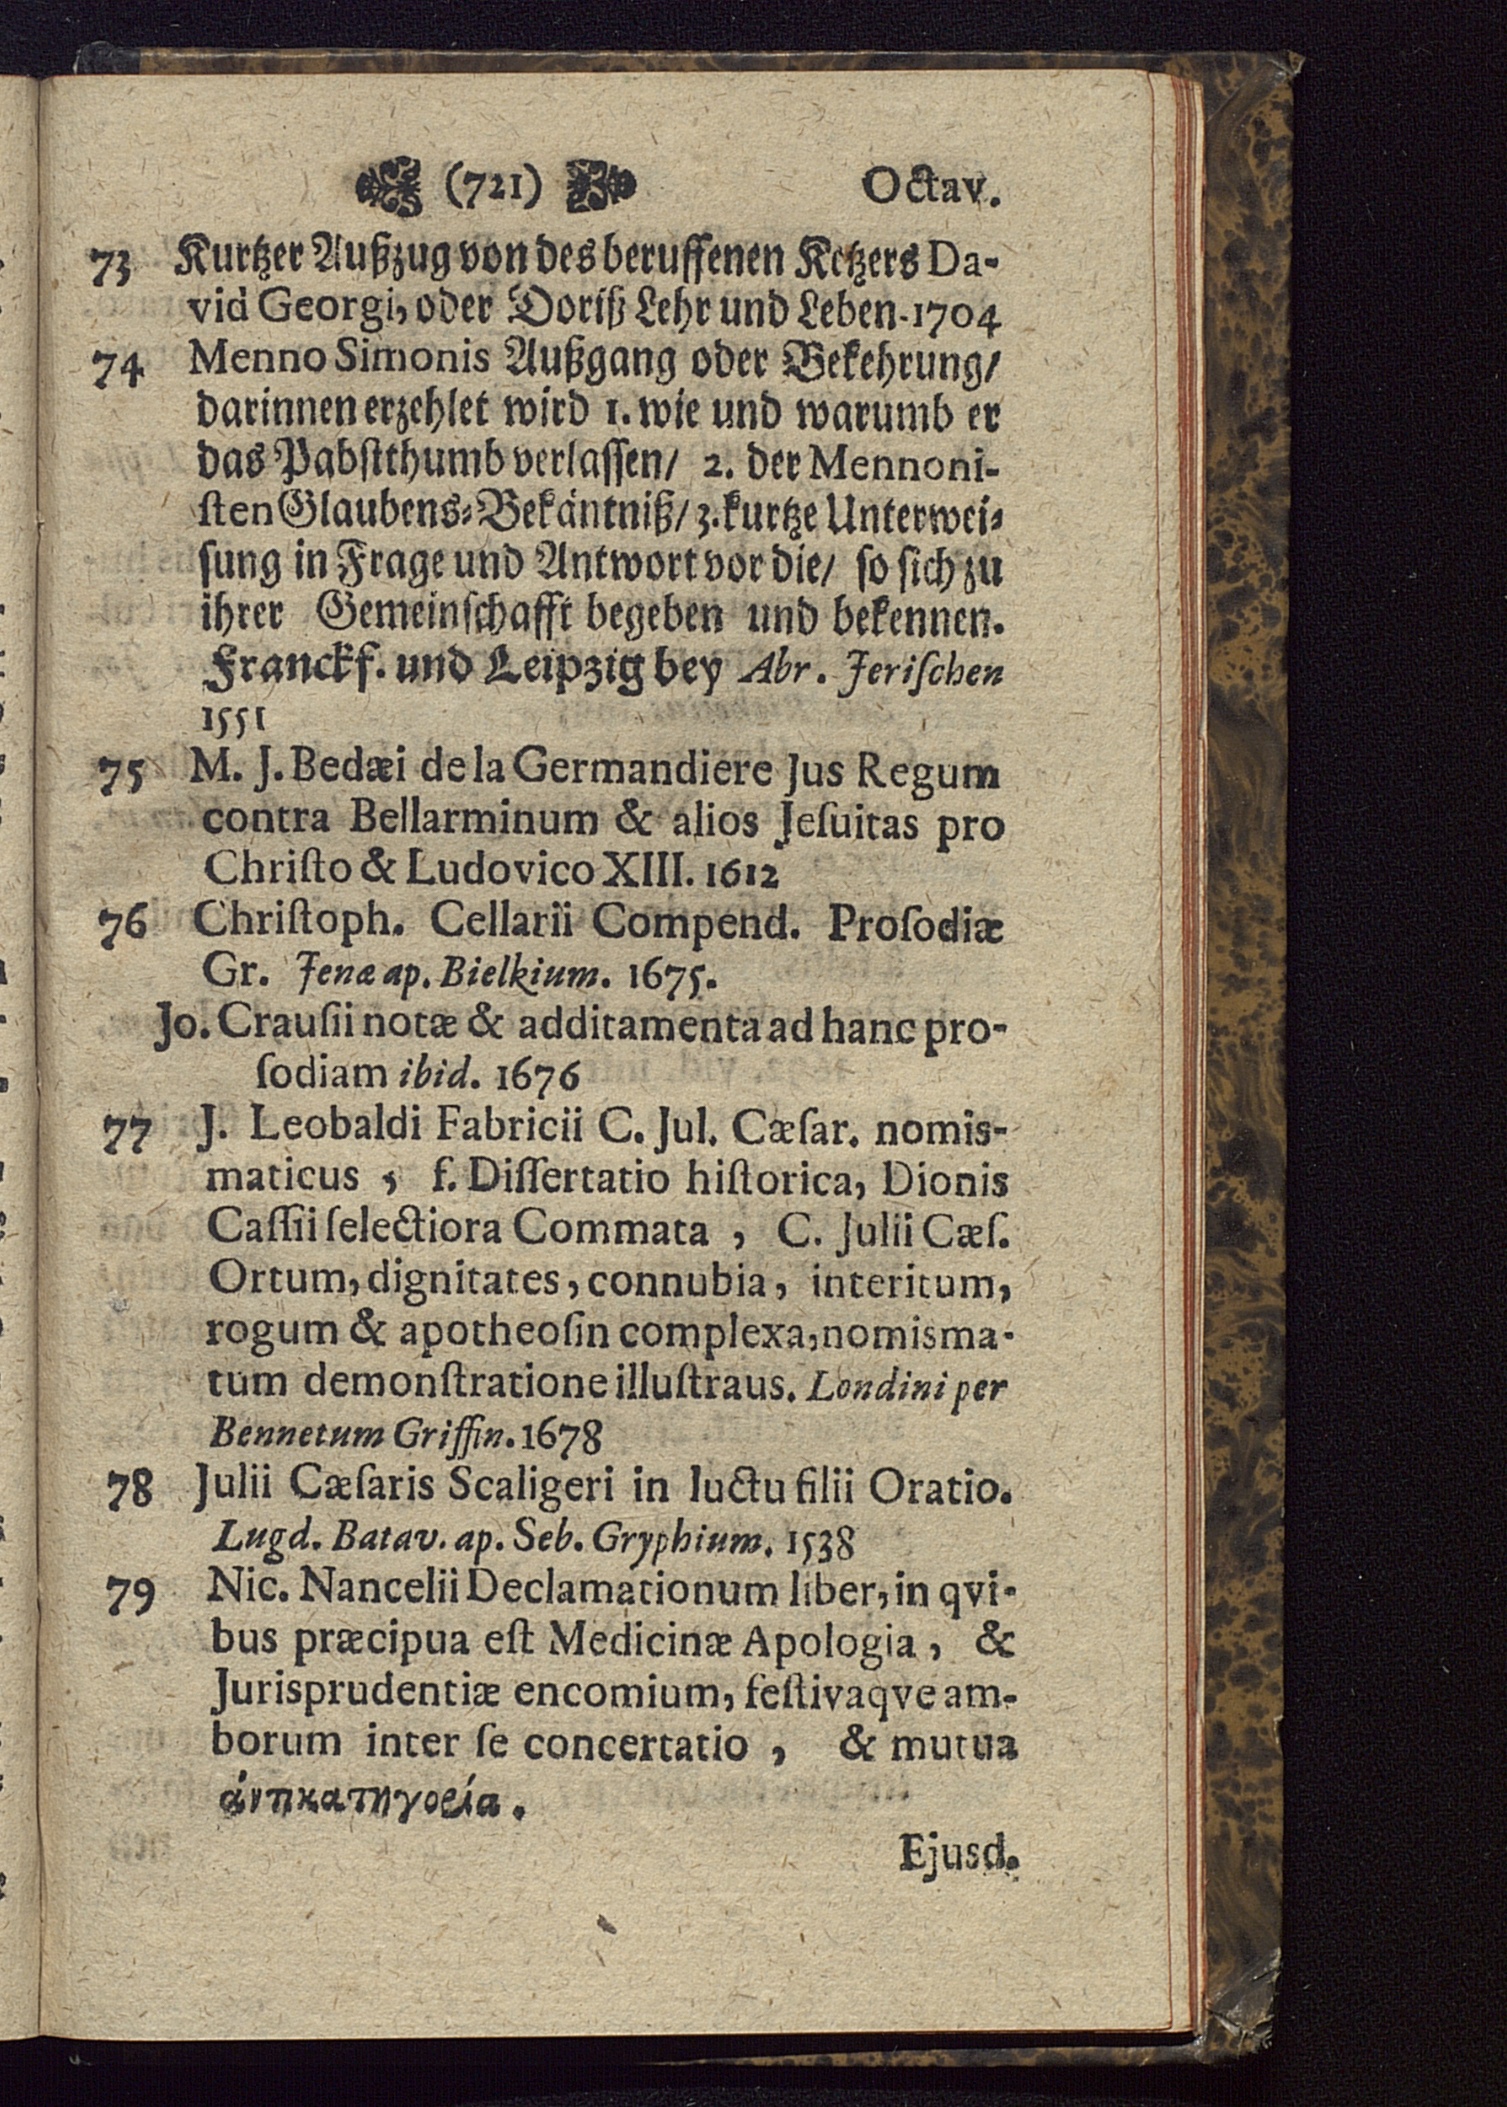 (721) Octav.
73 Kurtzer Außzug von des beruffenen Ketzers Da-
vid Georgi, oder Doriß Lehr und Leben. 1704
74 Menno Simonis Außgang oder Bekehrung/
darinnen erzehlet wird 1. wie und warumb er
das Pabstthumb verlassen/ 2. der Mennoni-
ſten Glaubens-Bekäntniß/ 3. kurtze Unterwei-
ſung in Frage und Antwort vor die/ ſo ſich zu
ihrer Gemeinſchafft begeben und bekennen.
Franckf. und Leipzig bey Abr. Jeriſchen
1551
75 M. J. Bedæi de la Germandiere Jus Regum
contra Bellarminum & alios Jeſuitas pro
Chriſto & Ludovico XIII. 1612
76 Chriſtoph. Cellarii Compend. Proſodiæ
Gr. Jenæ ap. Bielkium. 1675.
Jo. Crauſii notæ & additamenta ad hanc pro-
ſodiam ibid. 1676
77 J. Leobaldi Fabricii C. Jul. Cæſar. nomis-
maticus, ſ. Diſſertatio hiſtorica, Dionis
Caſſii ſelectiora Commata, C. Julii Cæſ.
Ortum, dignitates, connubia, interitum,
rogum & apotheoſin complexa, nomisma-
tum demonſtratione illuſtraus. Londini per
Bennetum Griffin. 1678
78 Julii Cæſaris Scaligeri in luctu filii Oratio.
Lugd. Batav. ap. Seb. Gryphium. 1538
79 Nic. Nancelii Declamationum liber, in qvi-
bus præcipua eſt Medicinæ Apologia, &
Jurisprudentiæ encomium, feſtivaqve am-
borum inter ſe concertatio, & mutua
ἀντικατηγορία.
Ejusd.